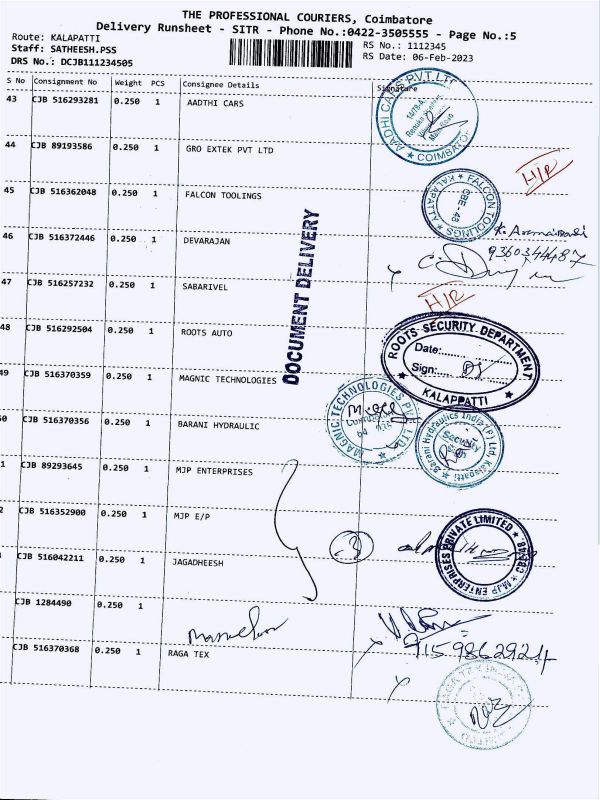 THE PROFESSIONAL COURIERS, Coimbatore
Delivery Runsheet - SITR - Phone No.:0422-3505555 - Page No.:5
Route: KALAPATTI
RS No.: 1112345
Staff: SATHEESH.PSS
RS Date: 06-Feb-2023
DRS No.: DCJB111234505
S No Consignment No Weight PCS Consignee Details Signature
43 CJB 516293281 0.250 1 AADTHI CARS
AADHI CARS PVT.LTD
COIMBATOR
44 CJB 89193586 0.250 1 GRO EXTEK PVT LTD
H/R
45 CJB 516362048 0.250 1 FALCON TOOLINGS
FALCON TOOLINGS
KALAPATTI
CBE - 48
46 CJB 516372446 0.250 1 DEVARAJAN
9360344487
47 CJB 516257232 0.250 1 SABARIVEL
H/R
DOCUMENT DELIVERY
48 CJB 516292504 0.250 1 ROOTS AUTO
ROOTS SECURITY DEPARTMENT
Date:
Sign:
KALAPPATTI
49 CJB 516370359 0.250 1 MAGNIC TECHNOLOGIES
MAGNIC TECHNOLOGIES PVT. LTD.
0 CJB 516370356 0.250 1 BARANI HYDRAULIC
Barani Hydraulics India (P) Ltd. Kalapatti
Security
Sign
1 CJB 89293645 0.250 1 MJP ENTERPRISES
2 CJB 516352900 0.250 1 MJP E/P
3
MJP ENTERPRISES PRIVATE LIMITED
CJB 516042211 0.250 1 JAGADHEESH
CJB 1284490 0.250 1
9159862924
CJB 516370368 0.250 1 RAGA TEX